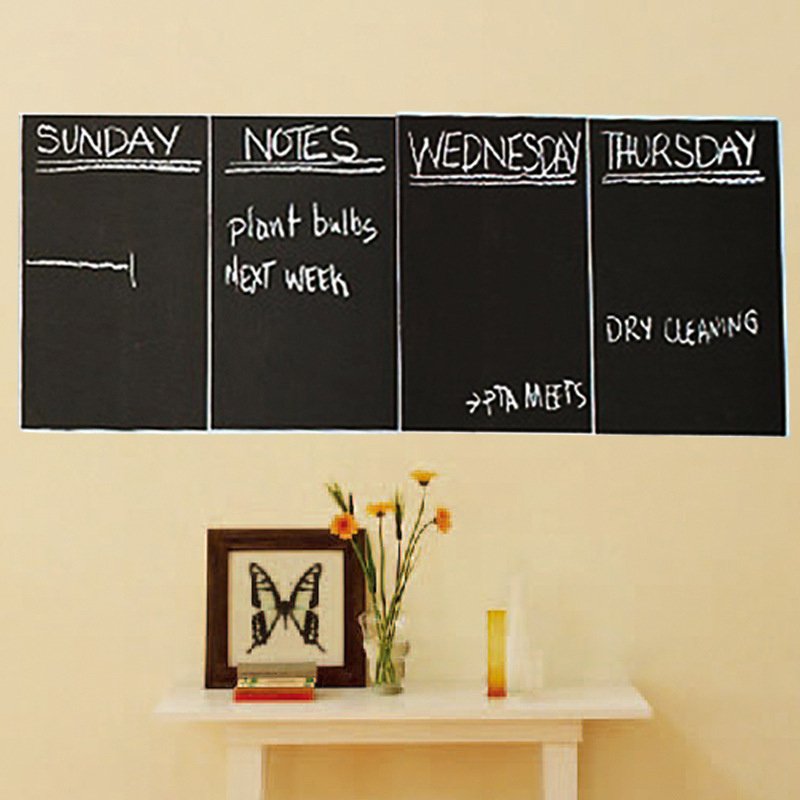 SUNDAY
NOTES
plant bulbs
NEXT WEEK
WEDNESDAY
→PTA MEETS
THURSDAY
DRY CLEANING